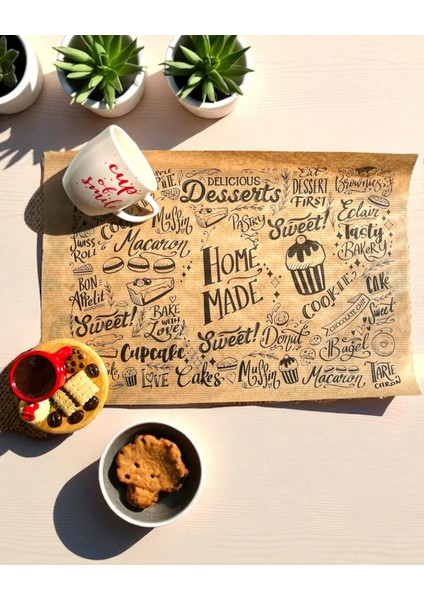 cup
of
smile
DELICIOUS
Desserts
Eat
DESSERT
FIRST
Brownies
Muffin
PASTRY
Sweet!
Eclair
Tasty
BAKERY
SWISS
ROLL
Macaron
HOME
MADE
COOKIE
Cake
BON
Appetit
BAKE
WITH
Love
CHOCOLATE
Sweet
Sweet!
Sweet!
Donut
Bagel
Cupcake
LOVE
Cakes
Muffin
Macaron
TARTE
CITRON